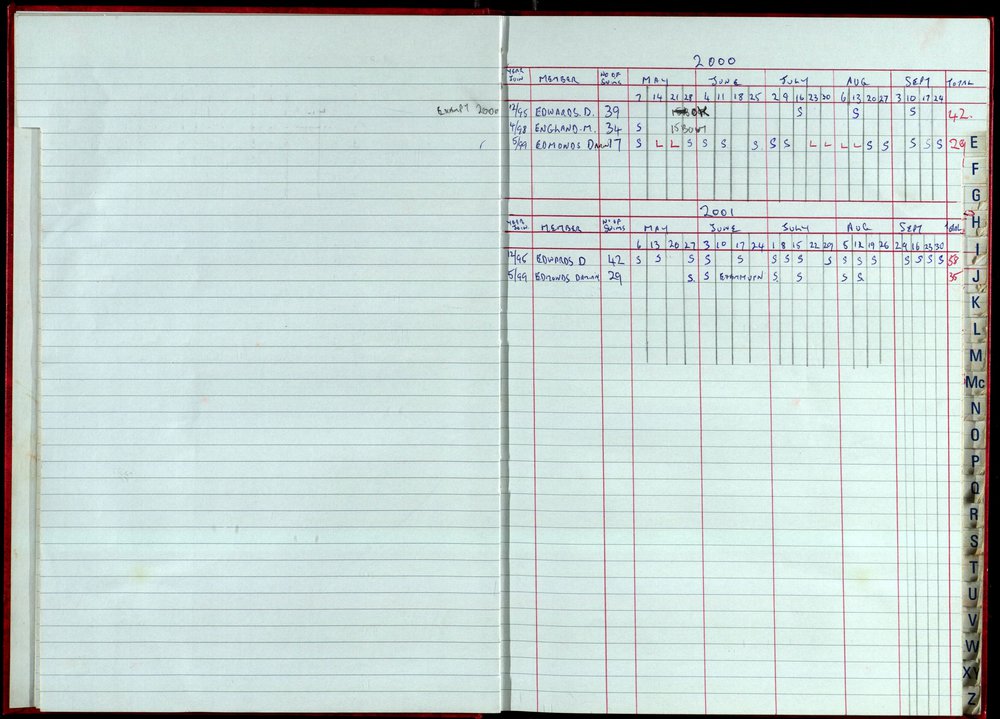 2000
YEAR JOIN MEMBER NO OF SWIMS MAY JUNE JULY AUG SEPT TOTAL
7 14 21 28 4 11 18 25 2 9 16 23 30 6 13 20 27 3 10 17 24
EXEMPT 2000 12/95 EDWARDS. D. 39 S S S 42.
4/98 ENGLAND. M. 34 S
5/99 EDMONDS 17 S L L S S S S S S L L L L S S S S S 29
2001
YEAR JOIN MEMBER NO OF SWIMS MAY JUNE JULY AUG SEPT TOTAL
6 13 20 27 3 10 17 24 1 8 15 22 29 5 12 19 26 2 9 16 23 30
12/95 EDWARDS D 42 S S S S S S S S S S S S S S S S 58
5/99 EDMONDS 29 S. S S. S S S 35
E
F
G
H
I
J
K
L
M
Mc
N
O
P
Q
R
S
T
U
V
W
XY
Z